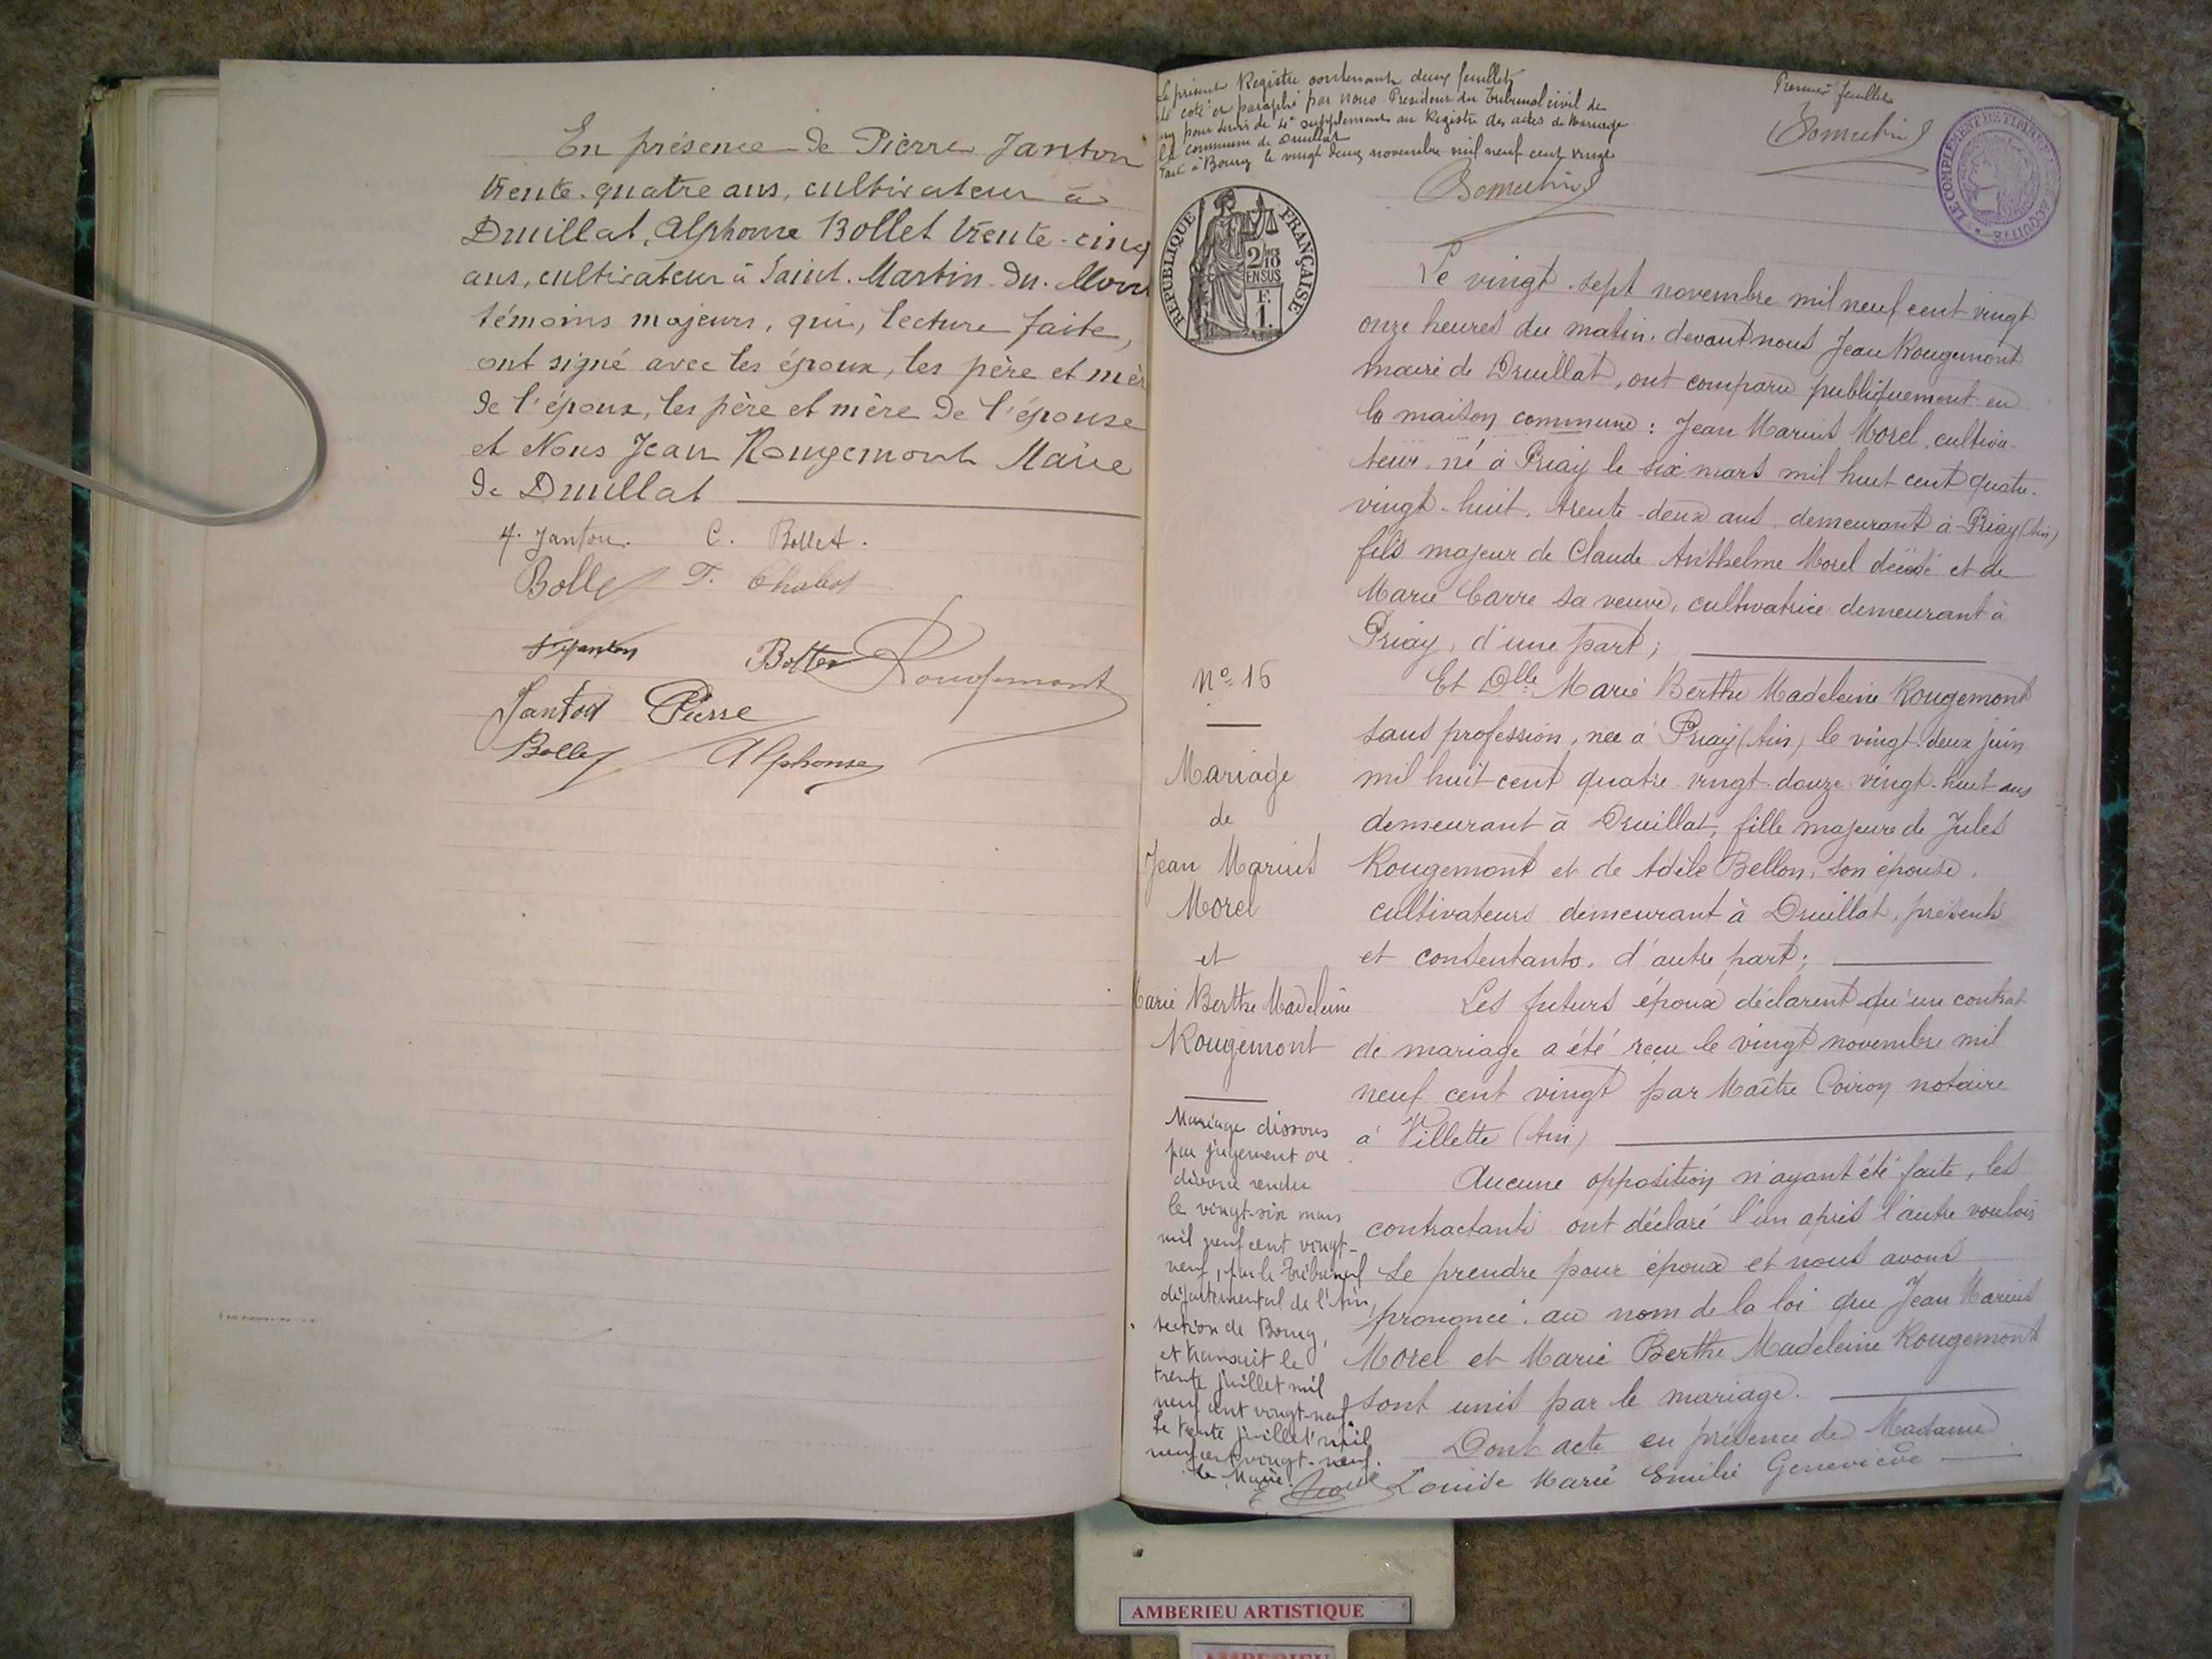 En présence de Pierre Janton
trente-quatre ans, cultivateur à
Druillat, Alphonse Bollet trente-cinq
ans, cultivateur à Saint-Martin-du-Mont
témoins majeurs, qui, lecture faite,
ont signé avec les époux, les père et mère
de l'époux, les père et mère de l'épouse
et Nous Jean Rougemont Maire
de Druillat
Janton. C. Bollet.
Bollet F. Chabot
Janton Bollet Rougemont
Janton Pierre
Bollet Alphonse
Le présent Registre contenant deux feuillets
été coté et paraphé par nous Président du Tribunal civil de
pour servir de 4e supplément au Registre des actes de Mariage
la commune de Druillat
Fait à Bourg le vingt deux novembre mil neuf cent vingt
Premier feuillet
LE COMPLEMENT DE TIMBRE ACQUITTÉ
REPUBLIQUE FRANÇAISE
2/10
EN SUS
F.
1.
Le vingt-sept novembre mil neuf cent vingt
onze heures du matin, devant nous Jean Rougemont
maire de Druillat, ont comparu publiquement en
la maison commune : Jean Marius Morel cultiva-
teur, né à Priay le six mars mil huit cent quatre-
vingt-huit, trente-deux ans, demeurant à Priay (Ain)
fils majeur de Claude Anthelme Morel décédé et de
Marie Carre sa veuve, cultivatrice demeurant à
Priay, d'une part ;
Et Dlle Marie Berthe Madeleine Rougemont
sans profession, née à Priay (Ain) le vingt-deux juin
mil huit cent quatre-vingt-douze vingt-huit ans
demeurant à Druillat, fille majeure de Jules
Rougemont et de Adèle Bellon, son épouse,
cultivateurs demeurant à Druillat, présents
et consentants, d'autre part ;
Les futurs époux déclarent qu'un contrat
de mariage a été reçu le vingt novembre mil
neuf cent vingt par Maître Coiron notaire
à Villette (Ain)
Aucune opposition n'ayant été faite, les
contractants ont déclaré l'un après l'autre vouloir
se prendre pour époux et nous avons
prononcé au nom de la loi que Jean Marius
Morel et Marie Berthe Madeleine Rougemont
sont unis par le mariage.
Dont acte en présence de Madame
Louise Marie Emilie Geneviève
No 16
Mariage
de
Jean Marius
Morel
et
Marie Berthe Madeleine
Rougemont
Mariage dissous
par jugement de
divorce rendu
le vingt-six mars
mil neuf cent vingt-
neuf, par le Tribunal
départemental de l'Ain,
section de Bourg,
et transcrit le
trente juillet mil
neuf cent vingt-neuf
Le trente juillet mil
neuf cent vingt-neuf.
Le Maire.
AMBERIEU ARTISTIQUE
AMBERIEU